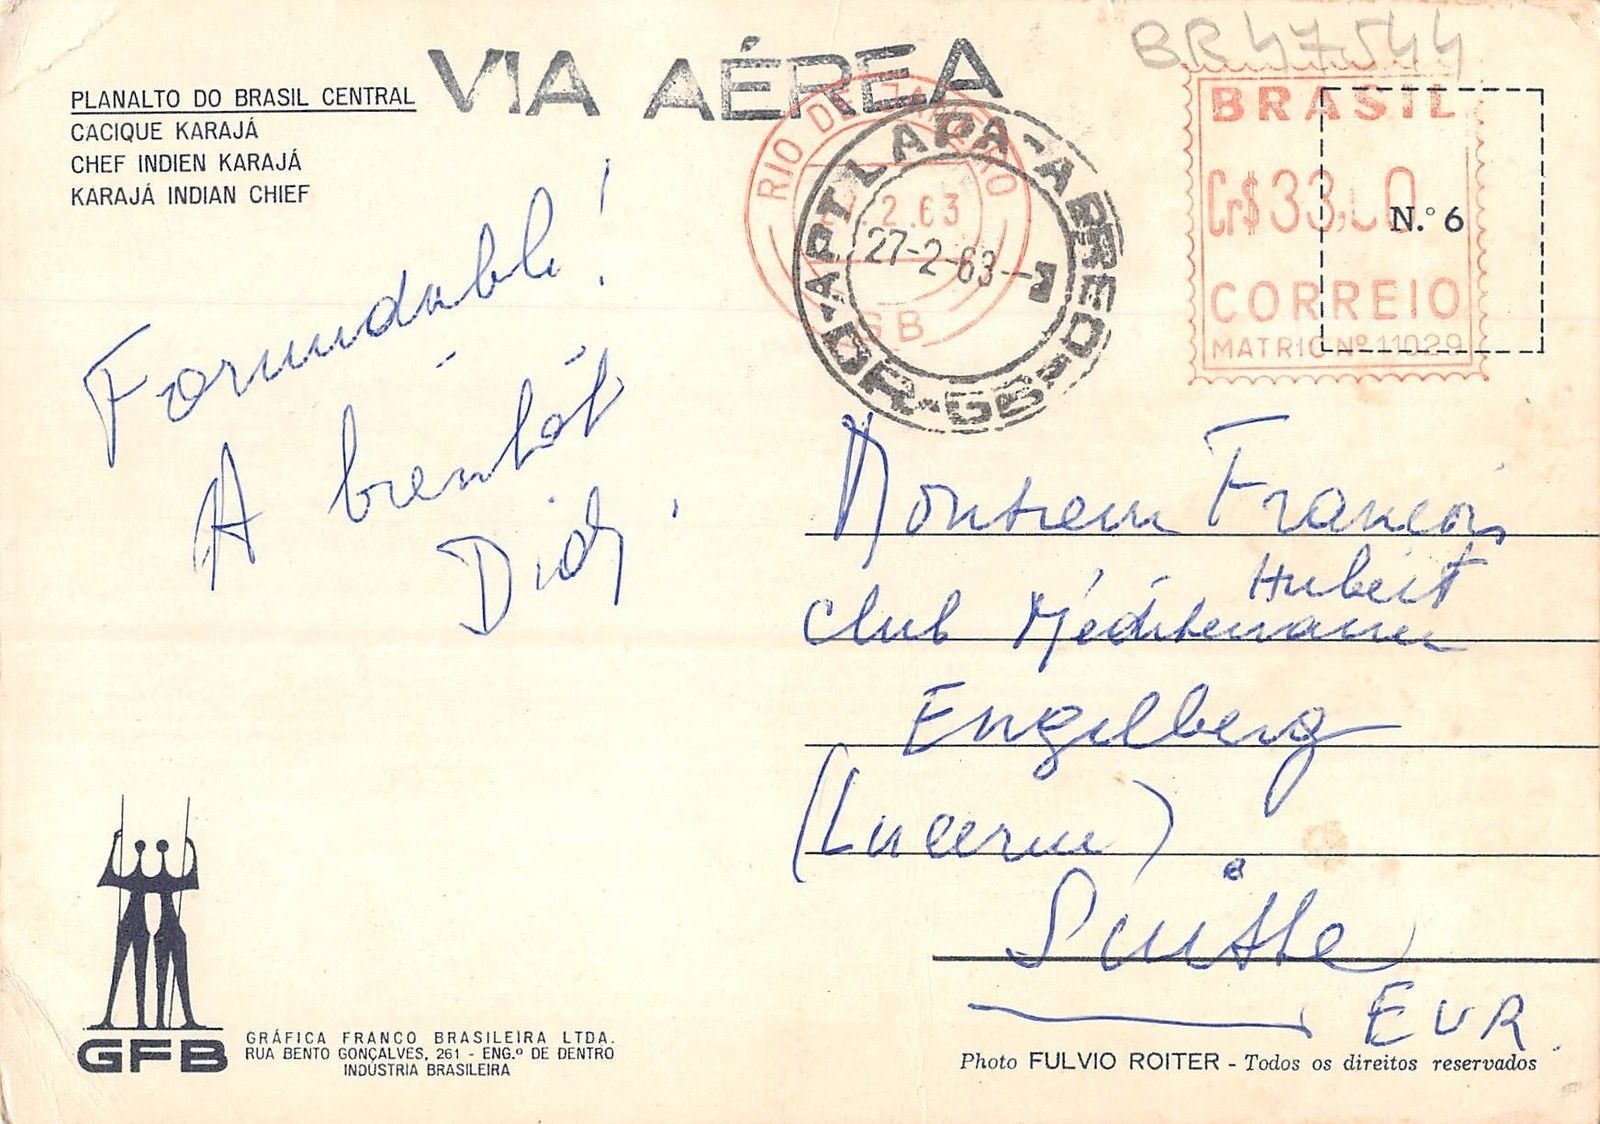 BR 47544
VIA AÉREA
PLANALTO DO BRASIL CENTRAL
CACIQUE KARAJÁ
CHEF INDIEN KARAJÁ
KARAJÁ INDIAN CHIEF
RIO DE JANEIRO
2.63
GB
LAPA-AEREO
27-2-63
DR-GB
BRASIL
Cr$33,00
CORREIO
MATRIC Nº 11029
N.º 6
Formidable !
A bientôt
Didy.
Monsieur François
Hubert
Club Méditerranée
Engelberg
(Lucerne)
Suisse
EUR.
GFB
GRÁFICA FRANCO BRASILEIRA LTDA.
RUA BENTO GONÇALVES, 261 - ENG.º DE DENTRO
INDÚSTRIA BRASILEIRA
Photo FULVIO ROITER - Todos os direitos reservados